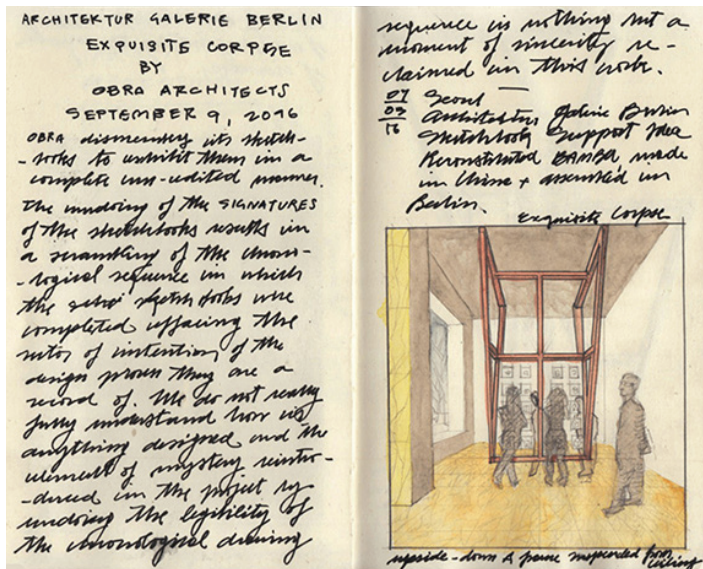 ARCHITEKTUR GALERIE BERLIN
EXQUISITE CORPSE
BY
OBRA ARCHITECTS
SEPTEMBER 9, 2016
OBRA dismembers its sketch-
-books to exhibit them in a
complete un-edited manner.
The undoing of the SIGNATURES
of the sketchbooks results in
a scrambling of the chrono-
-logical sequence in which
the sketchbooks were
completed effacing the
of intention of the
design process they are a
record of. We do not really
fully understand how is
anything designed and the
element of mystery reintro-
-duced in the project by
undoing the legibility of
the chronological drawing
sequence is nothing but a
moment of sincerity re-
claimed in this work.
07 Seoul —
03 Architektur Galerie Berlin
16 Sketchbooks Support Idea
Reconstituted made
in China + assembled in
Berlin.
Exquisite Corpse
upside-down A frame suspended from
ceiling